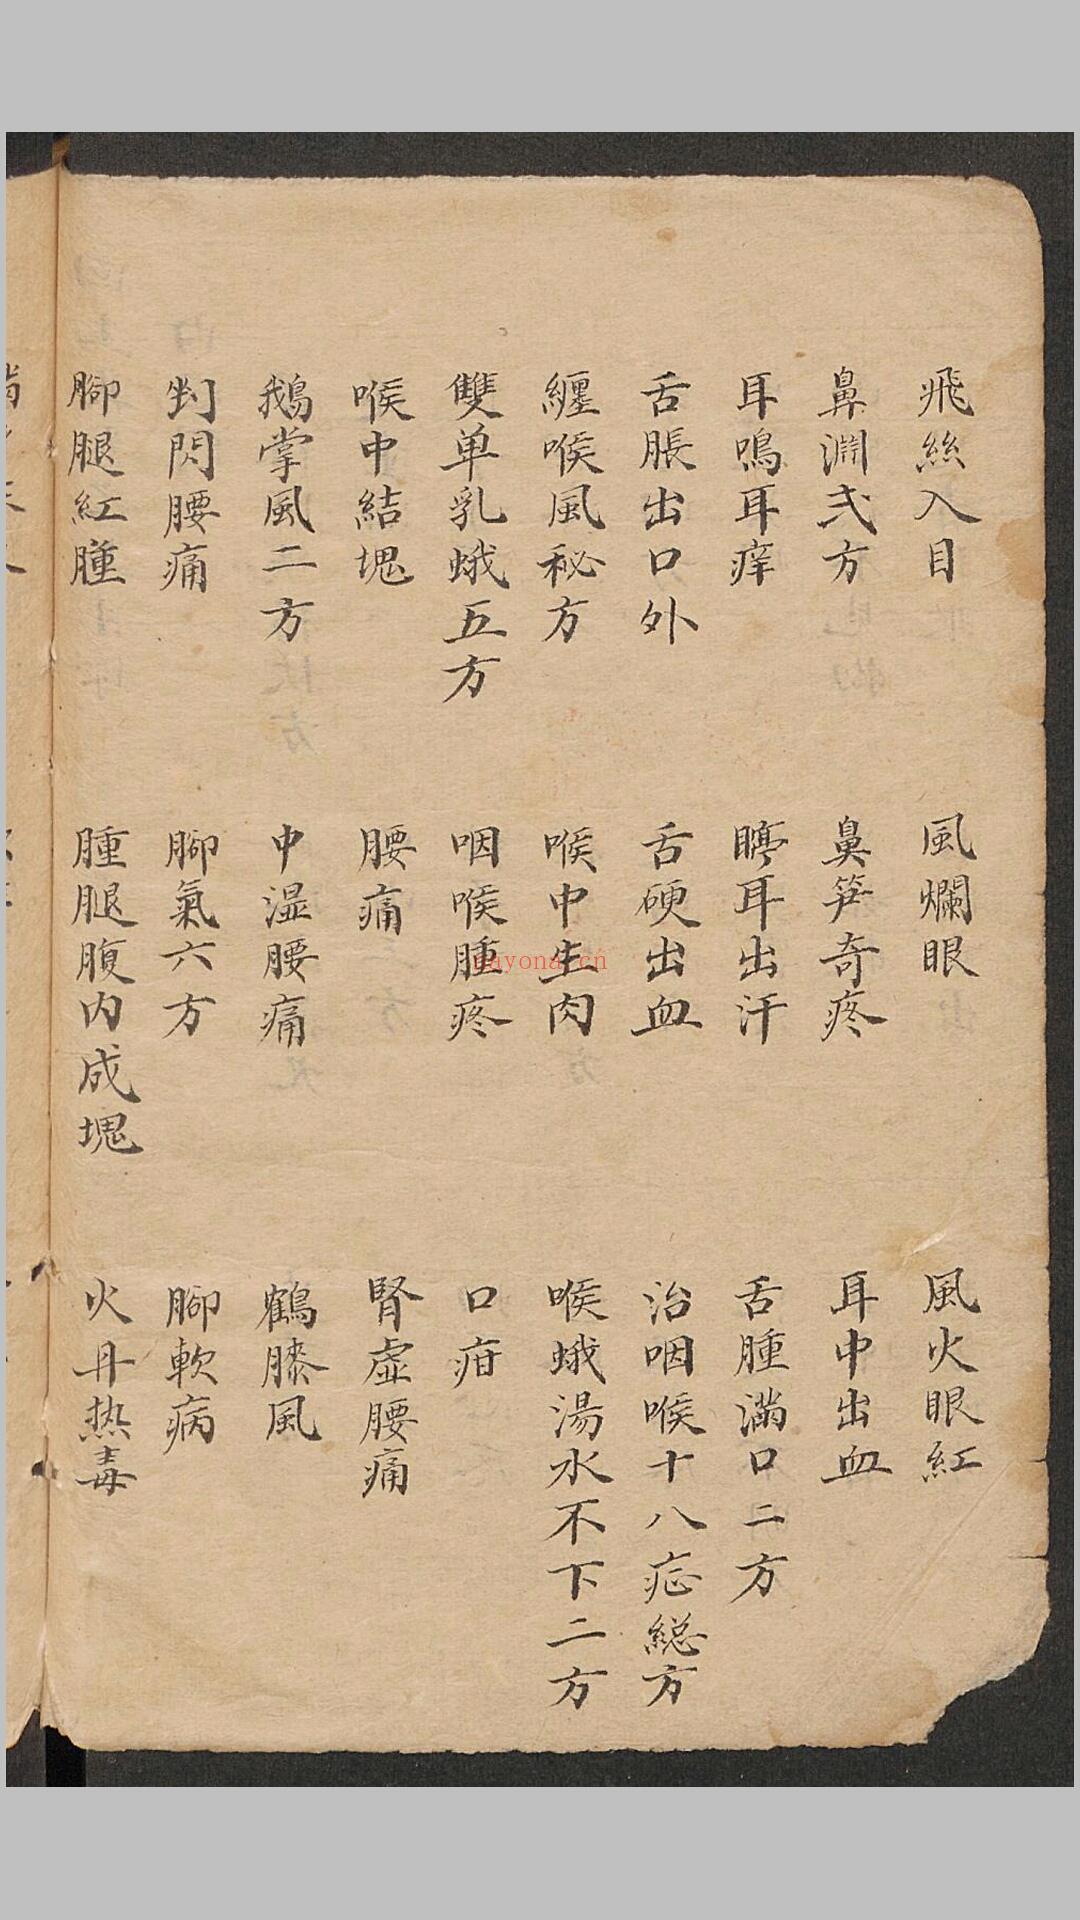 飛絲入目
風爛眼
風火眼紅
鼻淵弍方
鼻笋奇疼
耳中出血
耳鳴耳痒
聤耳出汗
舌腫滿口二方
舌脹出口外
舌硬出血
治咽喉十八症総方
纏喉風秘方
喉中生肉
喉蛾湯水不下二方
雙单乳蛾五方
咽喉腫疼
口疳
喉中結塊
腰痛
腎虛腰痛
鵝掌風二方
中湿腰痛
鶴膝風
閃腰痛
腳氣六方
腳軟病
腳腿紅腫
腫腿腹内成塊
火丹热毒